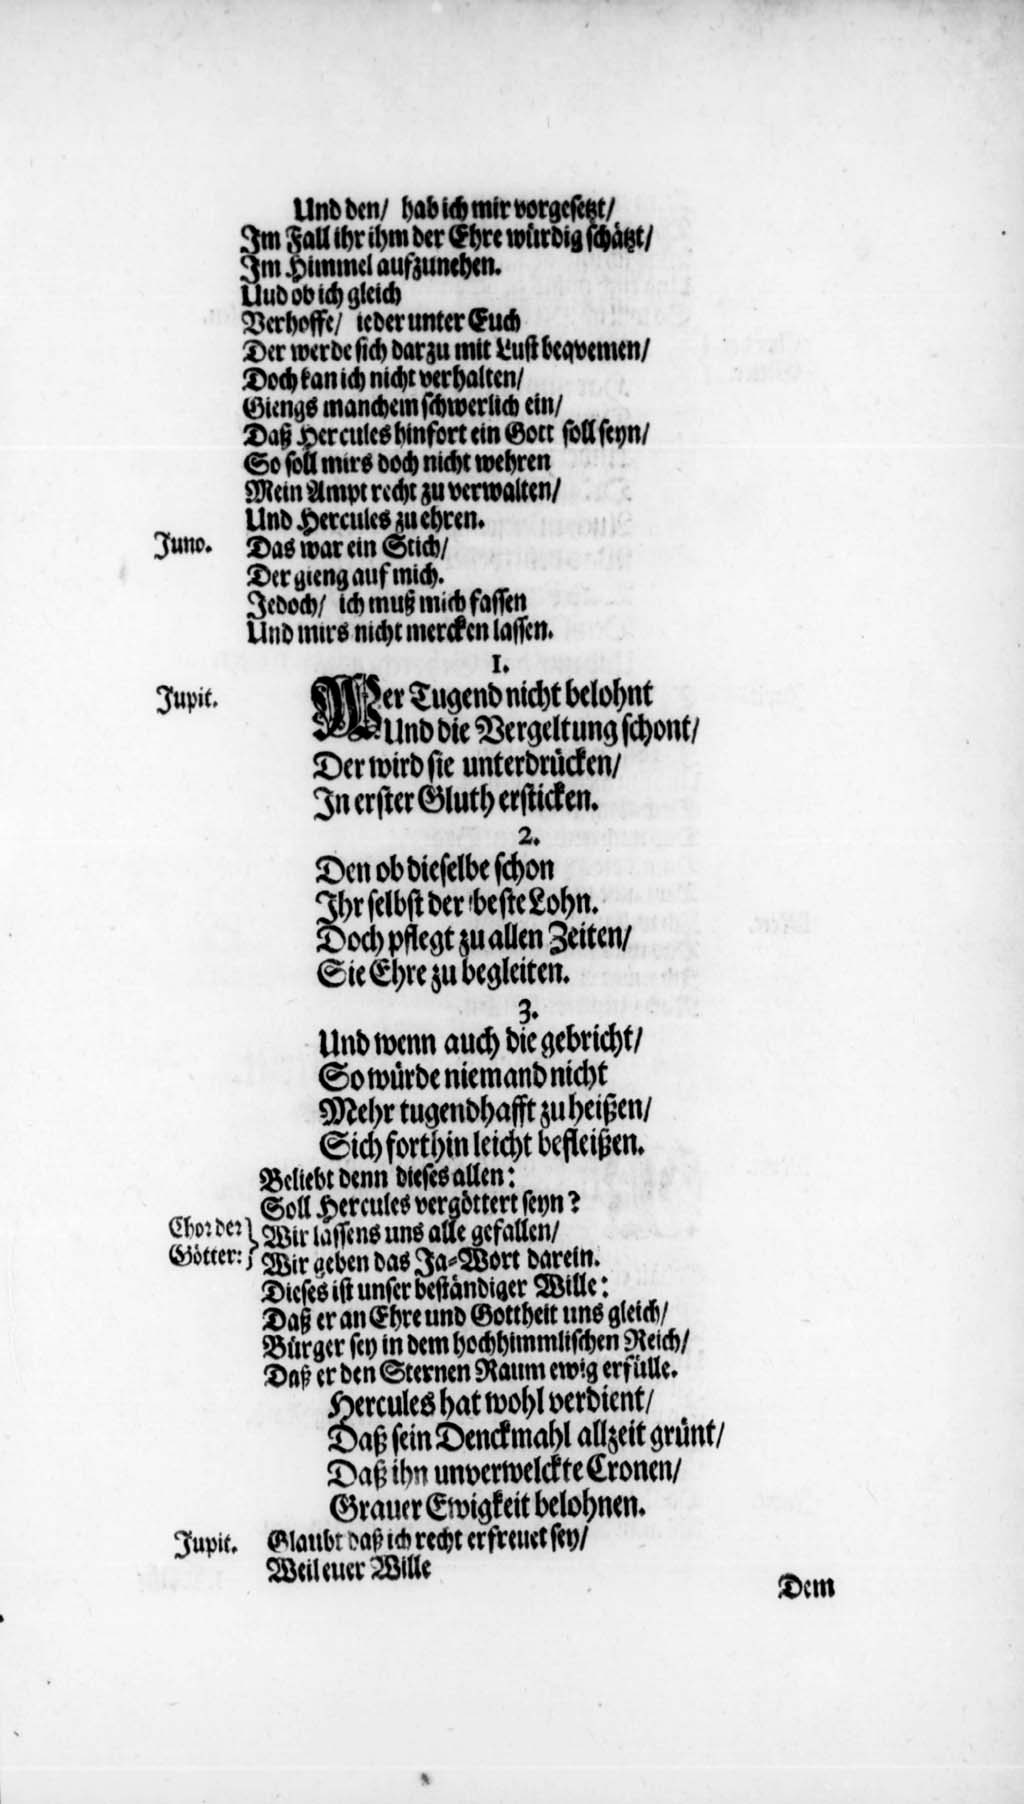 Und den/ hab ich mir vorgesetzt/
Im Fall ihr ihm der Ehre würdig schätzt/
Im Himmel aufzunehen.
Uud ob ich gleich
Verhoffe/ ieder unter Euch
Der werde sich darzu mit Lust beqvemen/
Doch kan ich nicht verhalten/
Giengs manchem schwerlich ein/
Daß Hercules hinfort ein Gott soll seyn/
So soll mirs doch nicht wehren
Mein Ampt recht zu verwalten/
Und Hercules zu ehren.
Juno. Das war ein Stich/
Der gieng auf mich.
Jedoch/ ich muß mich fassen
Und mirs nicht mercken lassen.
1.
Jupit. Wer Tugend nicht belohnt
Und die Vergeltung schont/
Der wird sie unterdrücken/
In erster Gluth ersticken.
2.
Den ob dieselbe schon
Ihr selbst der beste Lohn.
Doch pflegt zu allen Zeiten/
Sie Ehre zu begleiten.
3.
Und wenn auch die gebricht/
So würde niemand nicht
Mehr tugendhafft zu heißen/
Sich forthin leicht befleißen.
Beliebt denn dieses allen:
Soll Hercules vergöttert seyn?
Chor der } Wir lassens uns alle gefallen/
Götter: } Wir geben das Ja-Wort darein.
Dieses ist unser beständiger Wille:
Daß er an Ehre und Gottheit uns gleich/
Bürger sey in dem hochhimmlischen Reich/
Daß er den Sternen Raum ewig erfülle.
Hercules hat wohl verdient/
Daß sein Denckmahl allzeit grünt/
Daß ihn unverwelckte Cronen/
Grauer Ewigkeit belohnen.
Jupit. Glaubt daß ich recht erfreuet sey/
Weil euer Wille
Dem